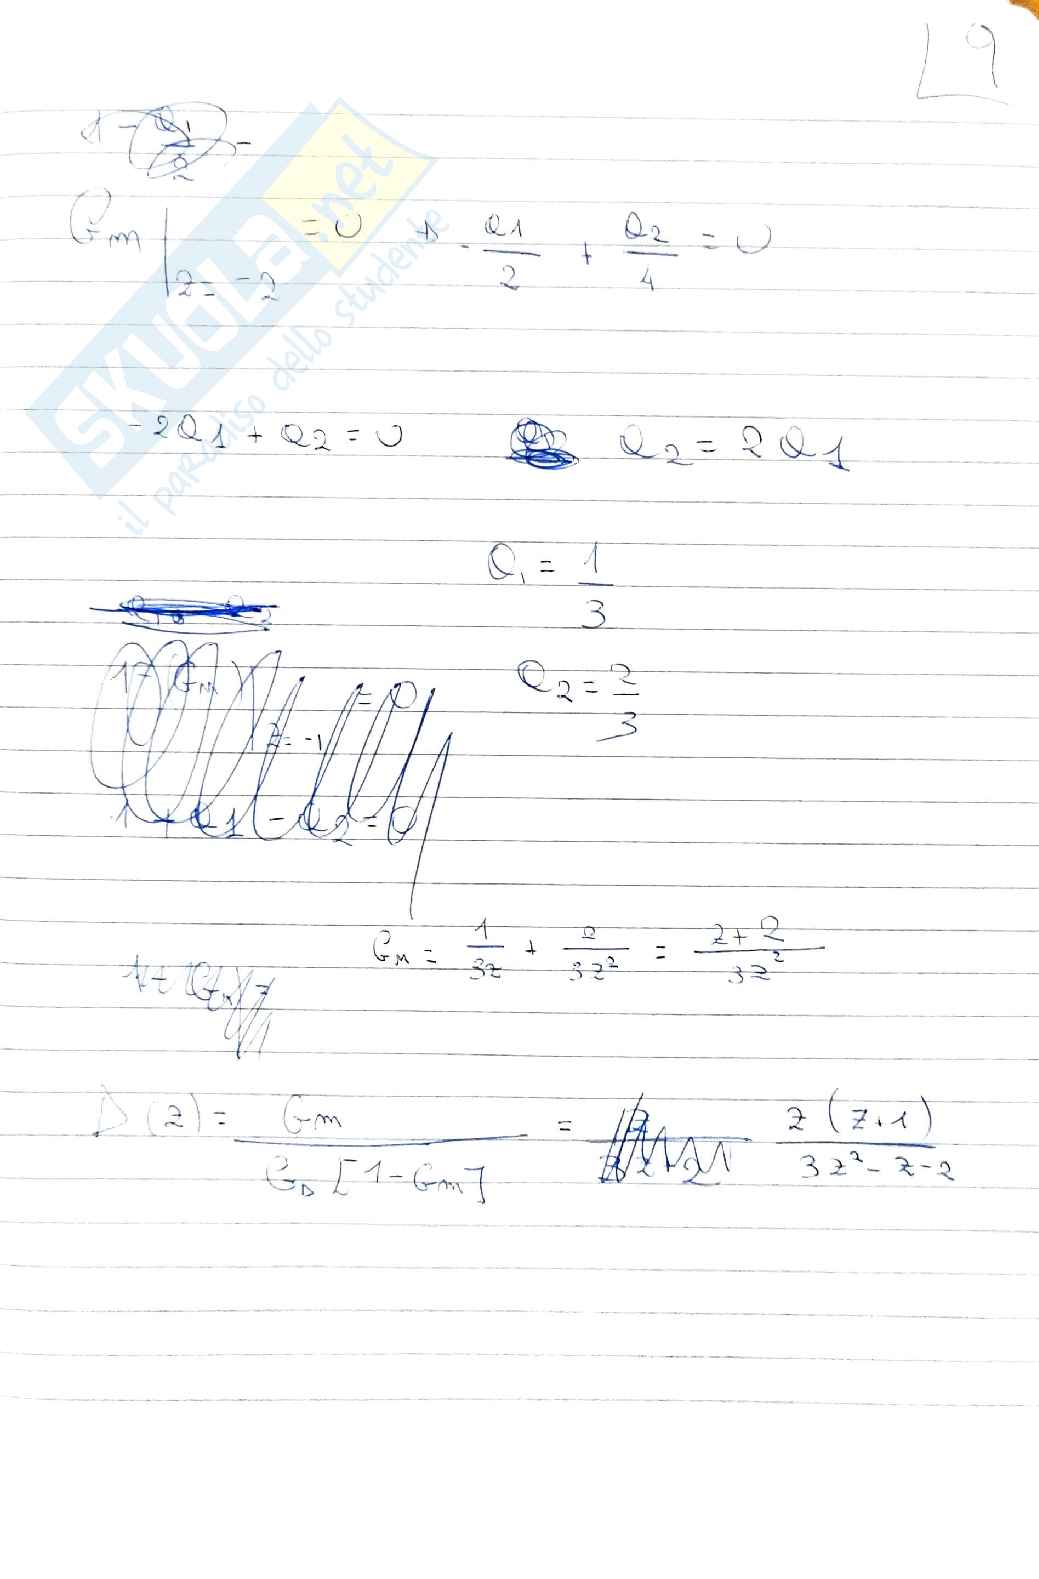 9
1 - Q1/2 -
Gm |z=-2 = 0 → - Q1/2 + Q2/4 = 0
SKUOLA.net
il paradiso dello studente
-2Q1 + Q2 = 0 Q2 = 2Q1
Q1 = 1/3
Q2 = 2/3
Gm z=-1 = 0
1 + Q1 - Q2 = 0
GM = 1/3z + 2/3z² = z+2/3z²
D(z) = Gm/GD[1-Gm] = z(z+1)/3z²-z-2